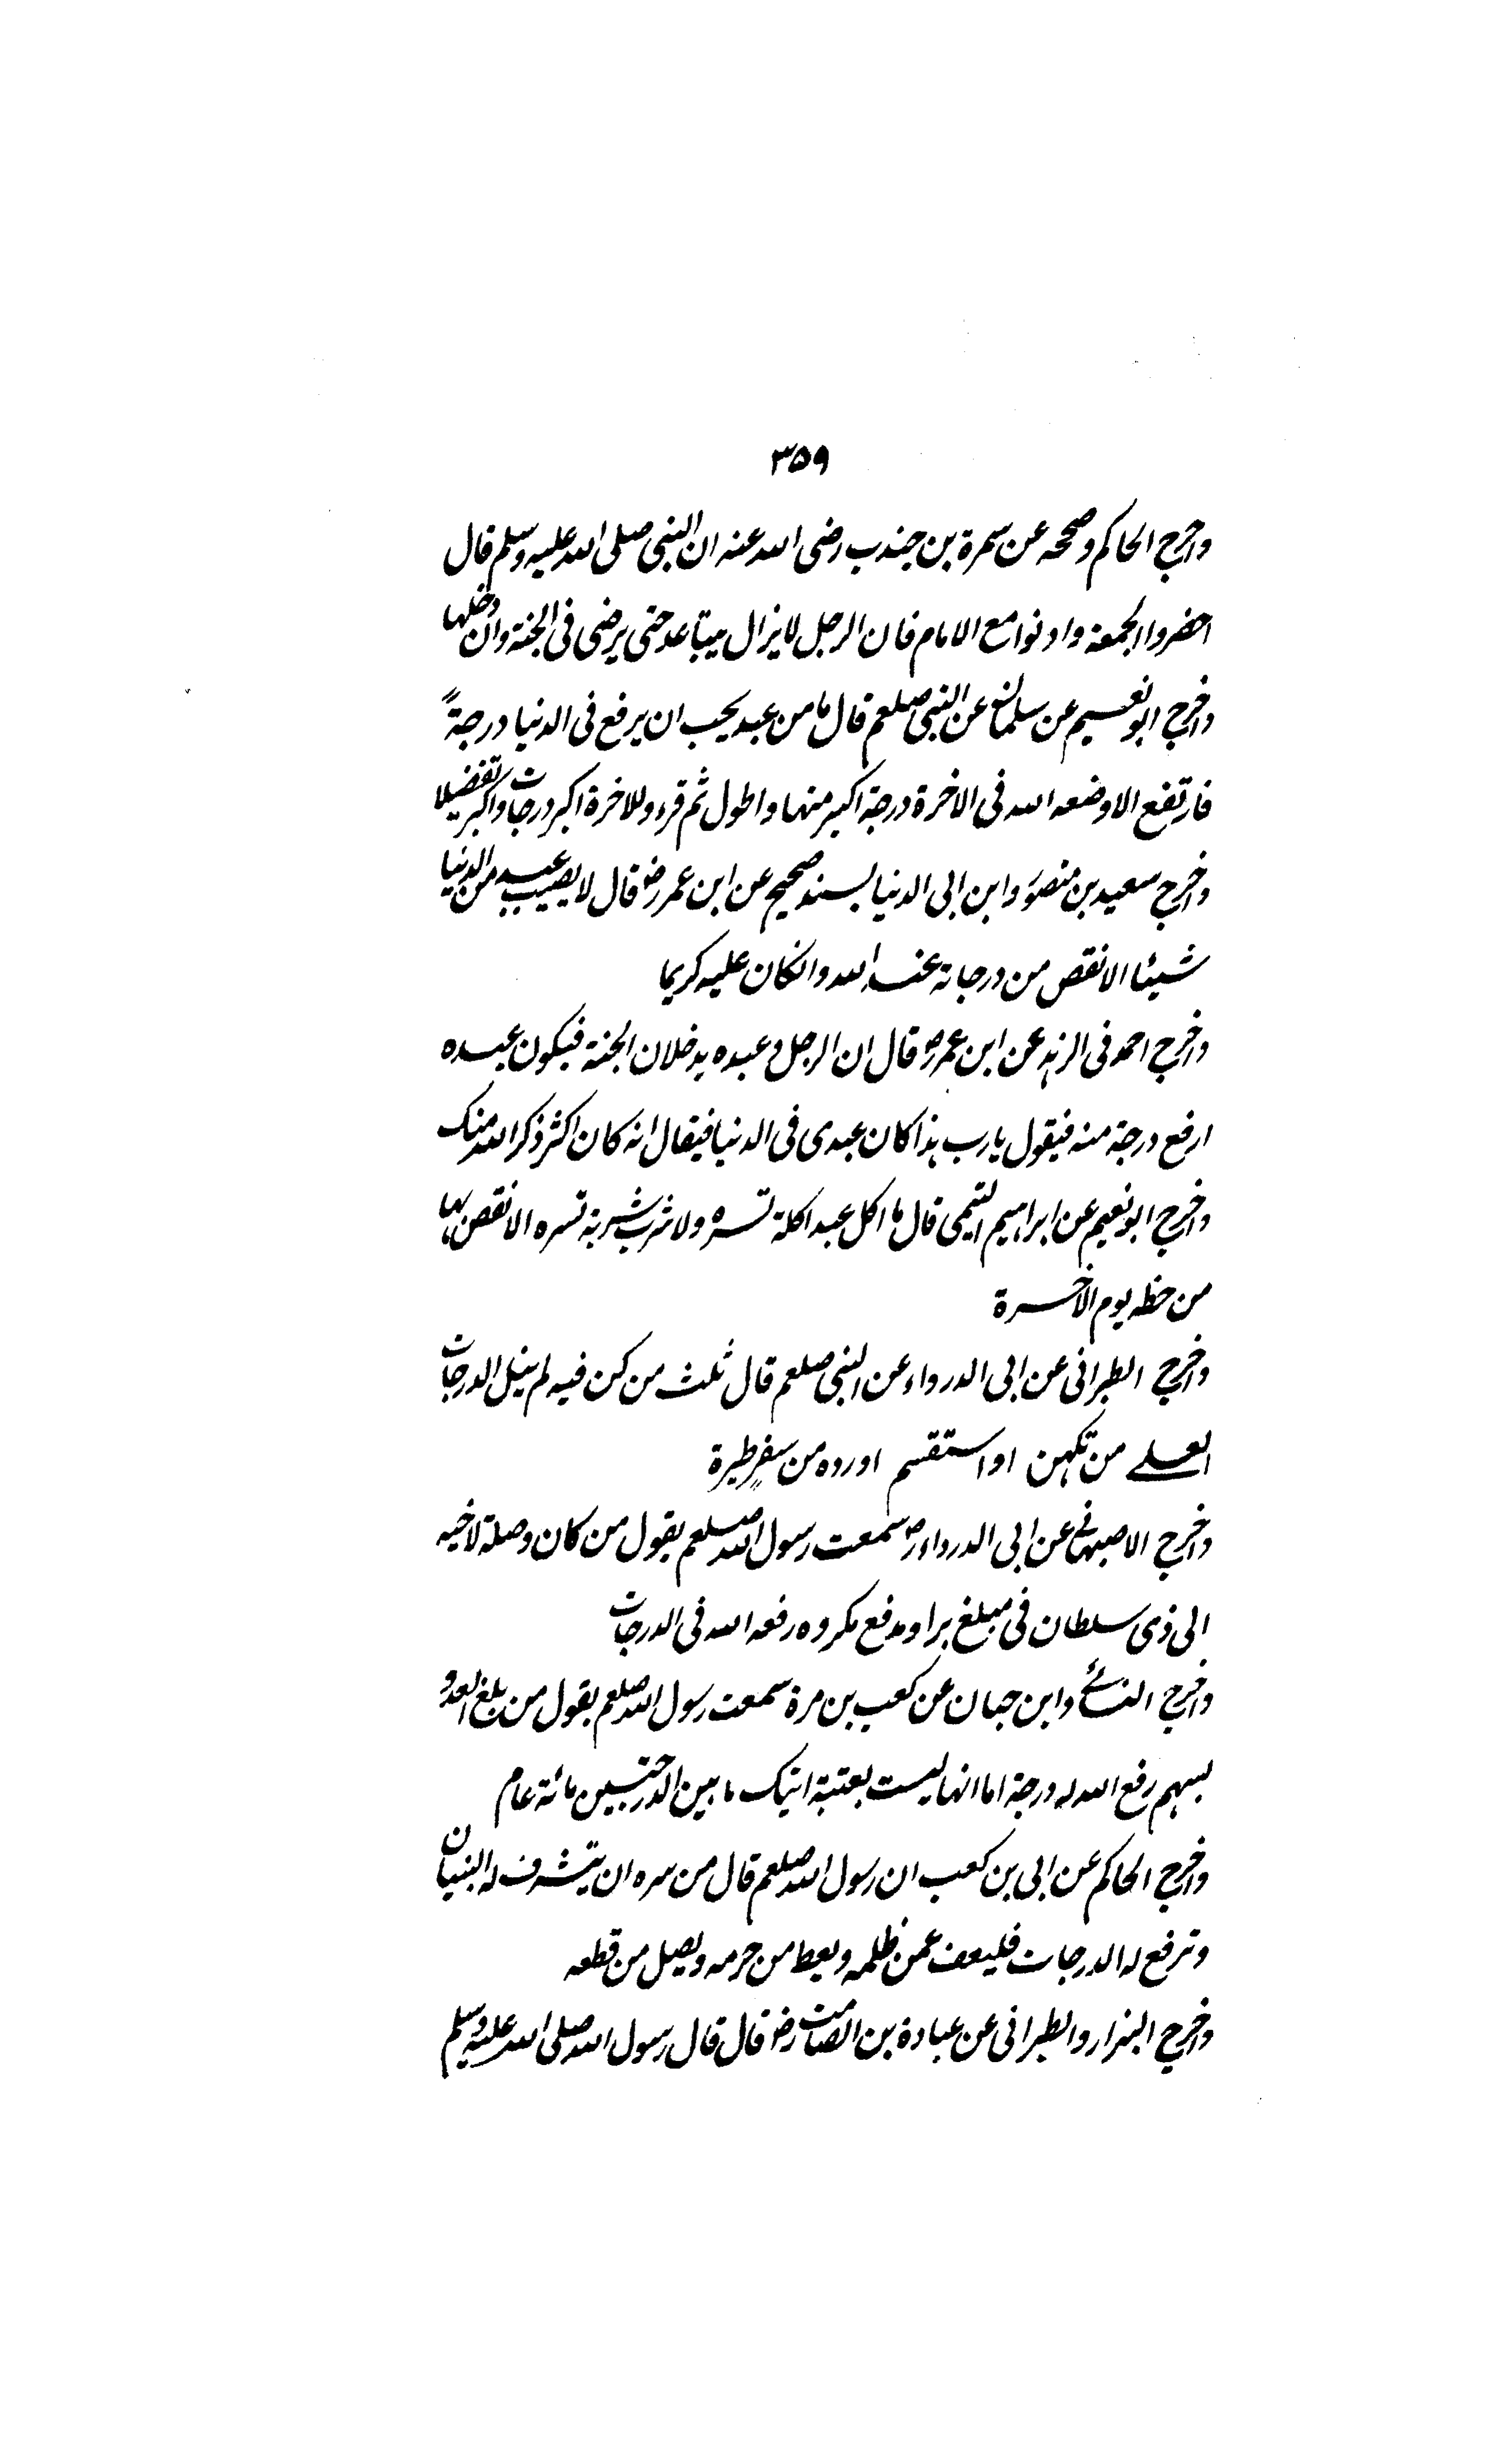 ۳۵۹
واخرج الحاکم وصححه عن سمرة بن جندب رضی الله عنه ان النبی صلی الله علیه وسلم قال
احضروا الجمعة وادنوا مع الامام فان الرجل لایزال یتباعد حتی یرضی فی الجنة وان دخلها
واخرج ابونعیم عن سلمان عن النبی صلعم قال ما من عبد یحب ان یرفع فی الدنیا درجةً
فارتفع الا وضعه الله فی الاخرة درجة اکبر منها واطول ثم قرء وللاخرة اکبر درجات واکبر تفضیلا
واخرج سعید بن منصور وابن ابی الدنیا بسند صحیح عن ابن عمر رضـ قال لا یصیب عبد من الدنیا
شیئا الا نقص من درجاته عند الله وانکان علیه کریما
واخرج احمد فی الزہد عن ابن عمر رضـ قال ان الرجل وعبده یدخلان الجنة فیکون عبده
ارفع درجة منه فیقول یارب ہذا کان عبدی فی الدنیا فیقال انه کان اکثر ذکرالله منک
واخرج ابونعیم عن ابراہیم التیمی قال ما اکل عبد اکلة تسره ولا شرب شربة تسره الا نقص بہا
من حظه یوم الاخرة
واخرج الطبرانی عن ابی الدرداء عن النبی صلعم قال ثلث من کن فیه لم ینل الدرجات
العلے من تکہن او استقسم اورده من سفرٍ طیرة
واخرج الاصبہانے عن ابی الدرداء رضـ سمعت رسول الله صلعم یقول من کان وصلة لاخیه
الی ذی سلطان فی مبلغ بر او مدفع مکروه رفعه الله فی الدرجات
واخرج النسائے وابن حبان عن کعب بن مرة سمعت رسول الله صلعم یقول من بلغ العدو
بسہم رفع الله له درجة اما انہا لیست بعتبة ابیک ما بین الدرجتین مائة عام
واخرج الحاکم عن ابی بن کعب ان رسول الله صلعم قال من سره ان یتشرف له البنیان
وترفع له الدرجات فلیعف عمن ظلمه ویعط من حرمه ویصل من قطعه
واخرج البزار والطبرانی عن عبادة بن الصامت رضـ قال قال رسول الله صلی الله علیه وسلم